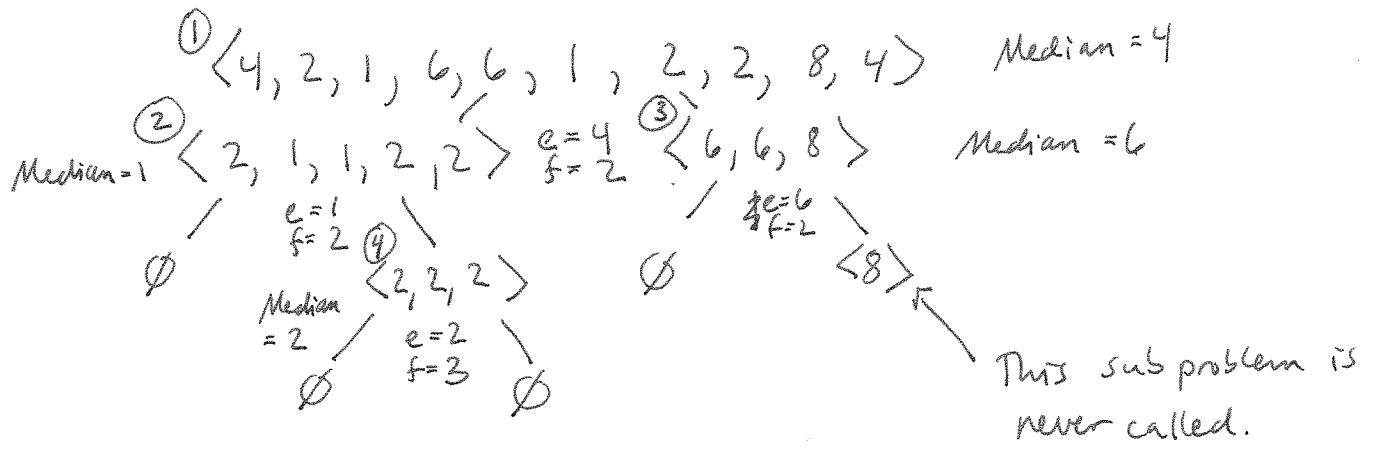 ① <4, 2, 1, 6, 6, 1, 2, 2, 8, 4> Median = 4
Median = 1 ② <2, 1, 1, 2, 2> e = 4 ③ <6, 6, 8> Median = 6
f = 2
e = 1 e = 6
f = 2 f = 2
∅ ④ <2, 2, 2> ∅ <8>
Median
= 2 e = 2
f = 3
∅ ∅
This subproblem is
never called.